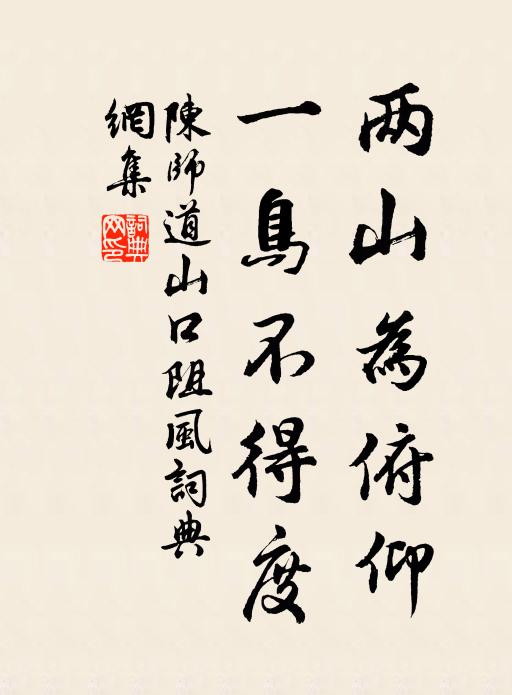 两山為俯仰
一鳥不得度
陳師道山口阻風詞典
網集
詞典網印